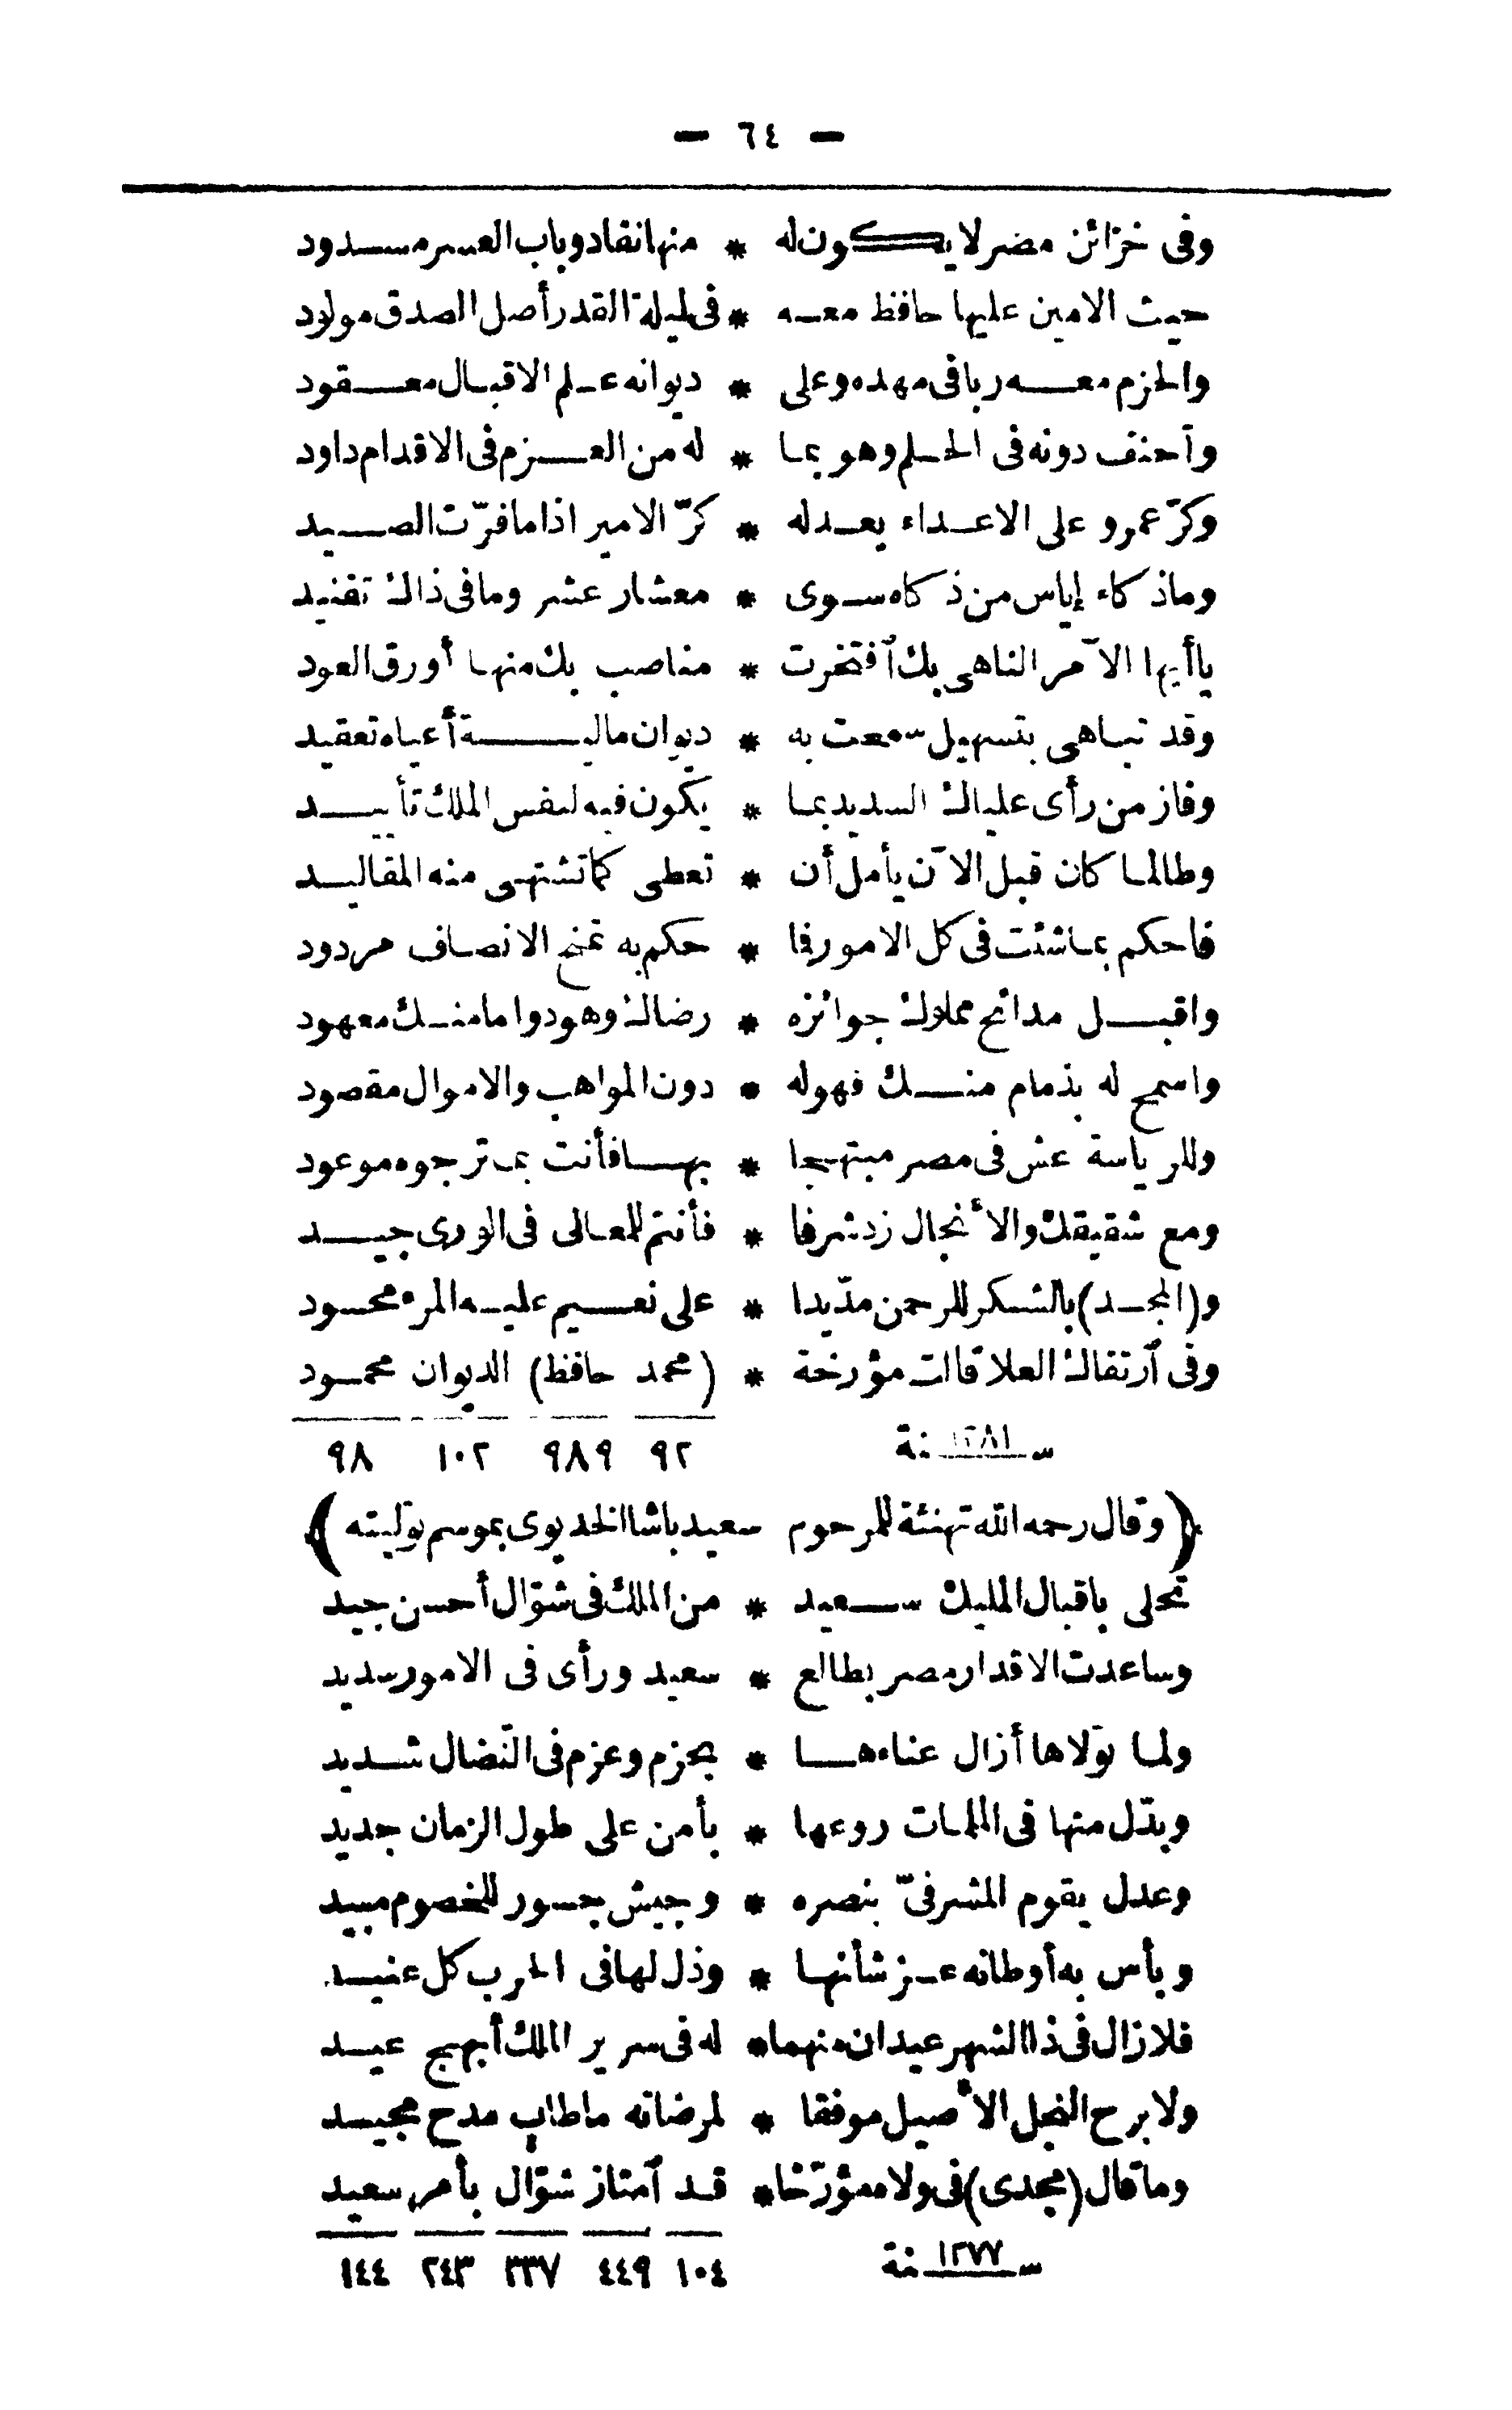 — ٦٤ —
وفى خزائن مضر لا يكون له * منها نقاد وباب العسر مسدود
حيث الامين عليها حافظ معه * فى ليلة القدر أصل الصدق مولود
والحزم معه ربا فى مهده وعلى * ديوانه علم الاقبال معقود
وأحنف دونه فى الحلم وهو بما * له من العزم فى الاقدام داود
وكرّ عمرو على الاعداء يعدله * كرّ الامير اذا ما فرّت الصيد
وماذ كاء إياس من ذكاه سوى * معشار عشر وما فى ذاك تفنيد
يا أيها الآمر الناهى بك ٱفتخرت * مناصب بك منها أورق العود
وقد تباهى بتسهيل سمعت به * ديوان مالية أعياه تعقيد
وفاز من رأى علياك السديد بما * يكون فيه لنفس الملك تأييد
وطالما كان قبل الآن يأمل أن * تعطى كما تشتهى منه المقاليد
فاحكم بما شئت فى كل الامور فما * حكم به تمنح الانصاف مردود
واقبل مدائح مملوك جوائزه * رضاك وهو دواما منك معهود
واسمح له بذمام منك فهو له * دون المواهب والاموال مقصود
وللرياسة عش فى مصر مبتهجا * بها فأنت بما ترجوه موعود
ومع شقيقك والأنجال زد شرفا * فأنتم للمعالى فى الورى جيد
و(المجد) بالشكر للرحمن مدّيدا * على نعيم عليه المرء محسود
وفى ٱرتفاك العلا قالت مؤرخة * (محمد حافظ) الديوان محمود
سنة ١٢٨١ ٩٢ ٩٨٩ ١٠٢ ٩٨
﴿ وقال رحمه الله تهنئة للمرحوم سعيد باشا الخديوى بموسم توليته ﴾
تحلى باقبال المليك سعيد * من الملك فى شوّال أحسن جيد
وساعدت الاقدار مصر بطالع * سعيد ورأى فى الامور سديد
ولما تولاها أزال عناءها * بحزم وعزم فى النضال شديد
وبدّل منها فى الملمات روعها * بأمن على طول الزمان جديد
وعدل يقوم المشرفىّ بنصره * وجيش جسور للخصوم مبيد
وبأس به أوطانه عز شأنها * وذل لها فى الحرب كل عنيد
فلا زال فى ذا الشهر عيدان منهما * له فى سرير الملك أبهج عيد
ولا برح النجل الأصيل موفقا * لمرضاته ما طاب مدح مجيد
وما قال (مجدى) فى ولاه مؤرّخا * قد ٱمتاز شوّال بأمر سعيد
سنة ١٢٧٧ ١٠٤ ٤٤٩ ٣٣٧ ٢٤٣ ١٤٤